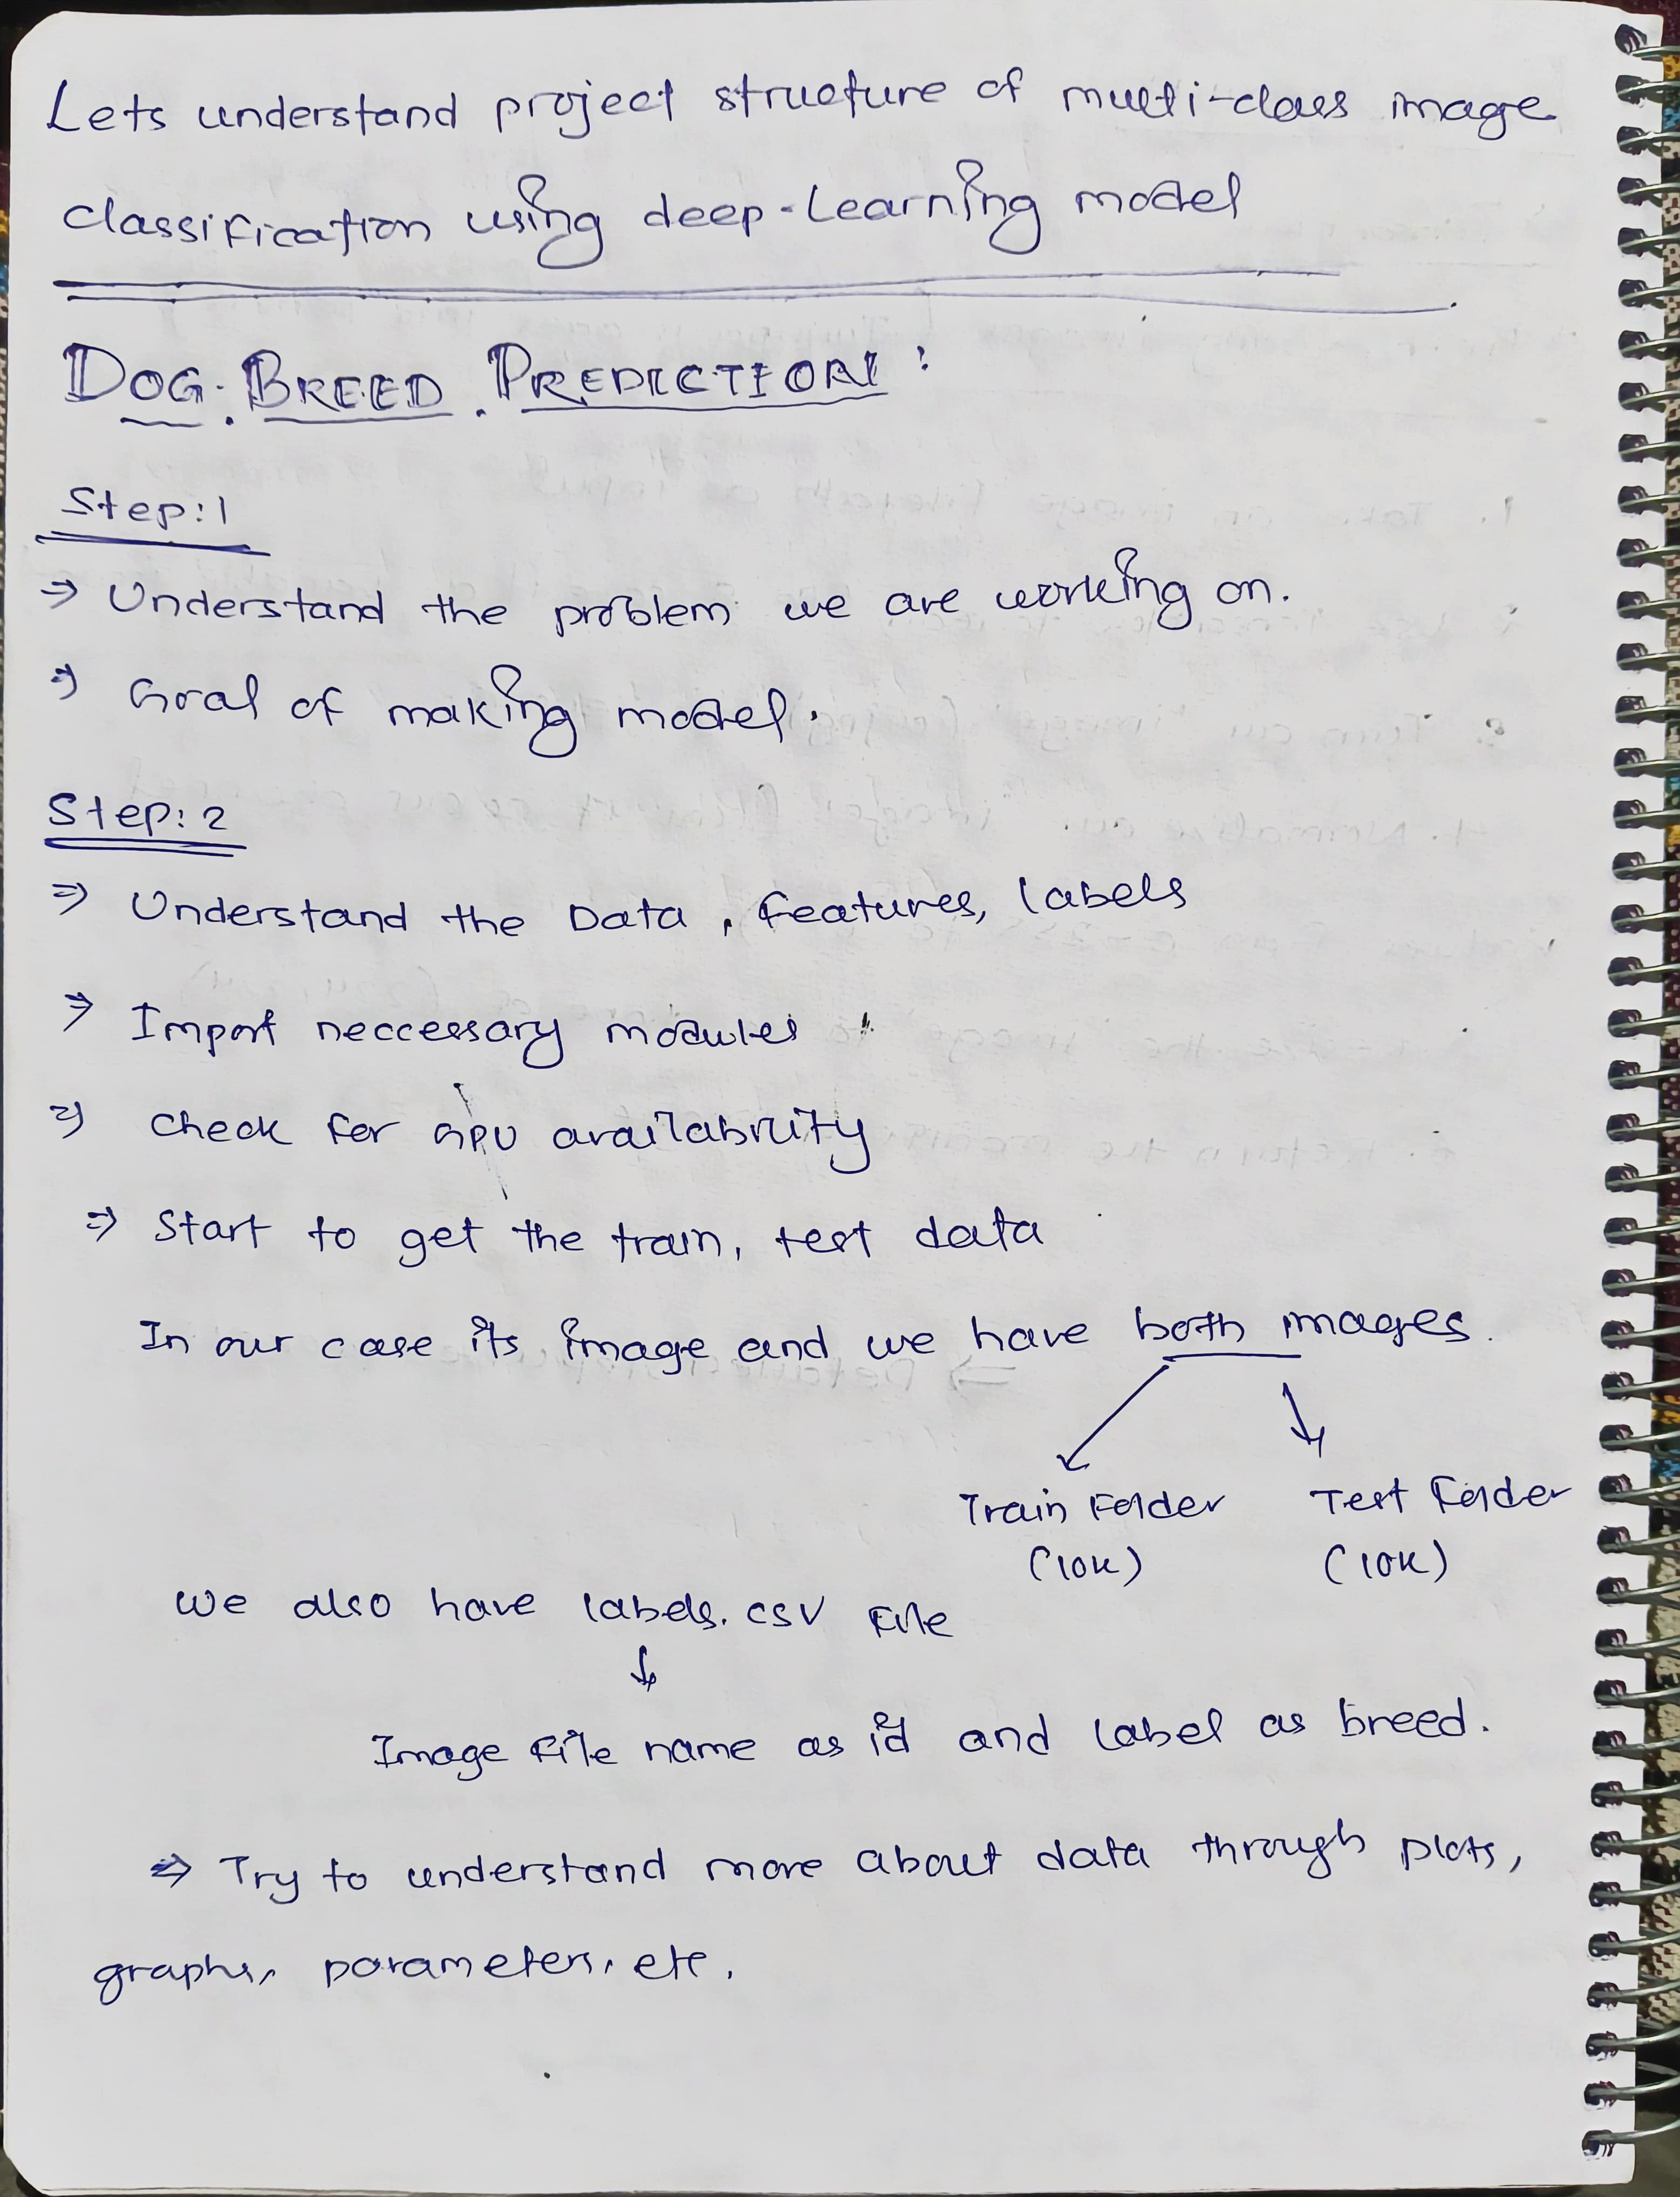 Lets understand project structure of multi-class image
classification using deep-learning model
DOG. BREED. PREDICTION:
Step:1
⇒ Understand the problem we are working on.
⇒ Goal of making model.
Step:2
⇒ Understand the Data, features, labels
⇒ Import neccessary modules
⇒ check for GPU availability
⇒ Start to get the train, test data
In our case its image and we have both images.
Train Folder Test Folder
(10K) (10K)
We also have labels.csv File
↓
Image file name as id and label as breed.
⇒ Try to understand more about data through plots,
graphs, parameters, etc.